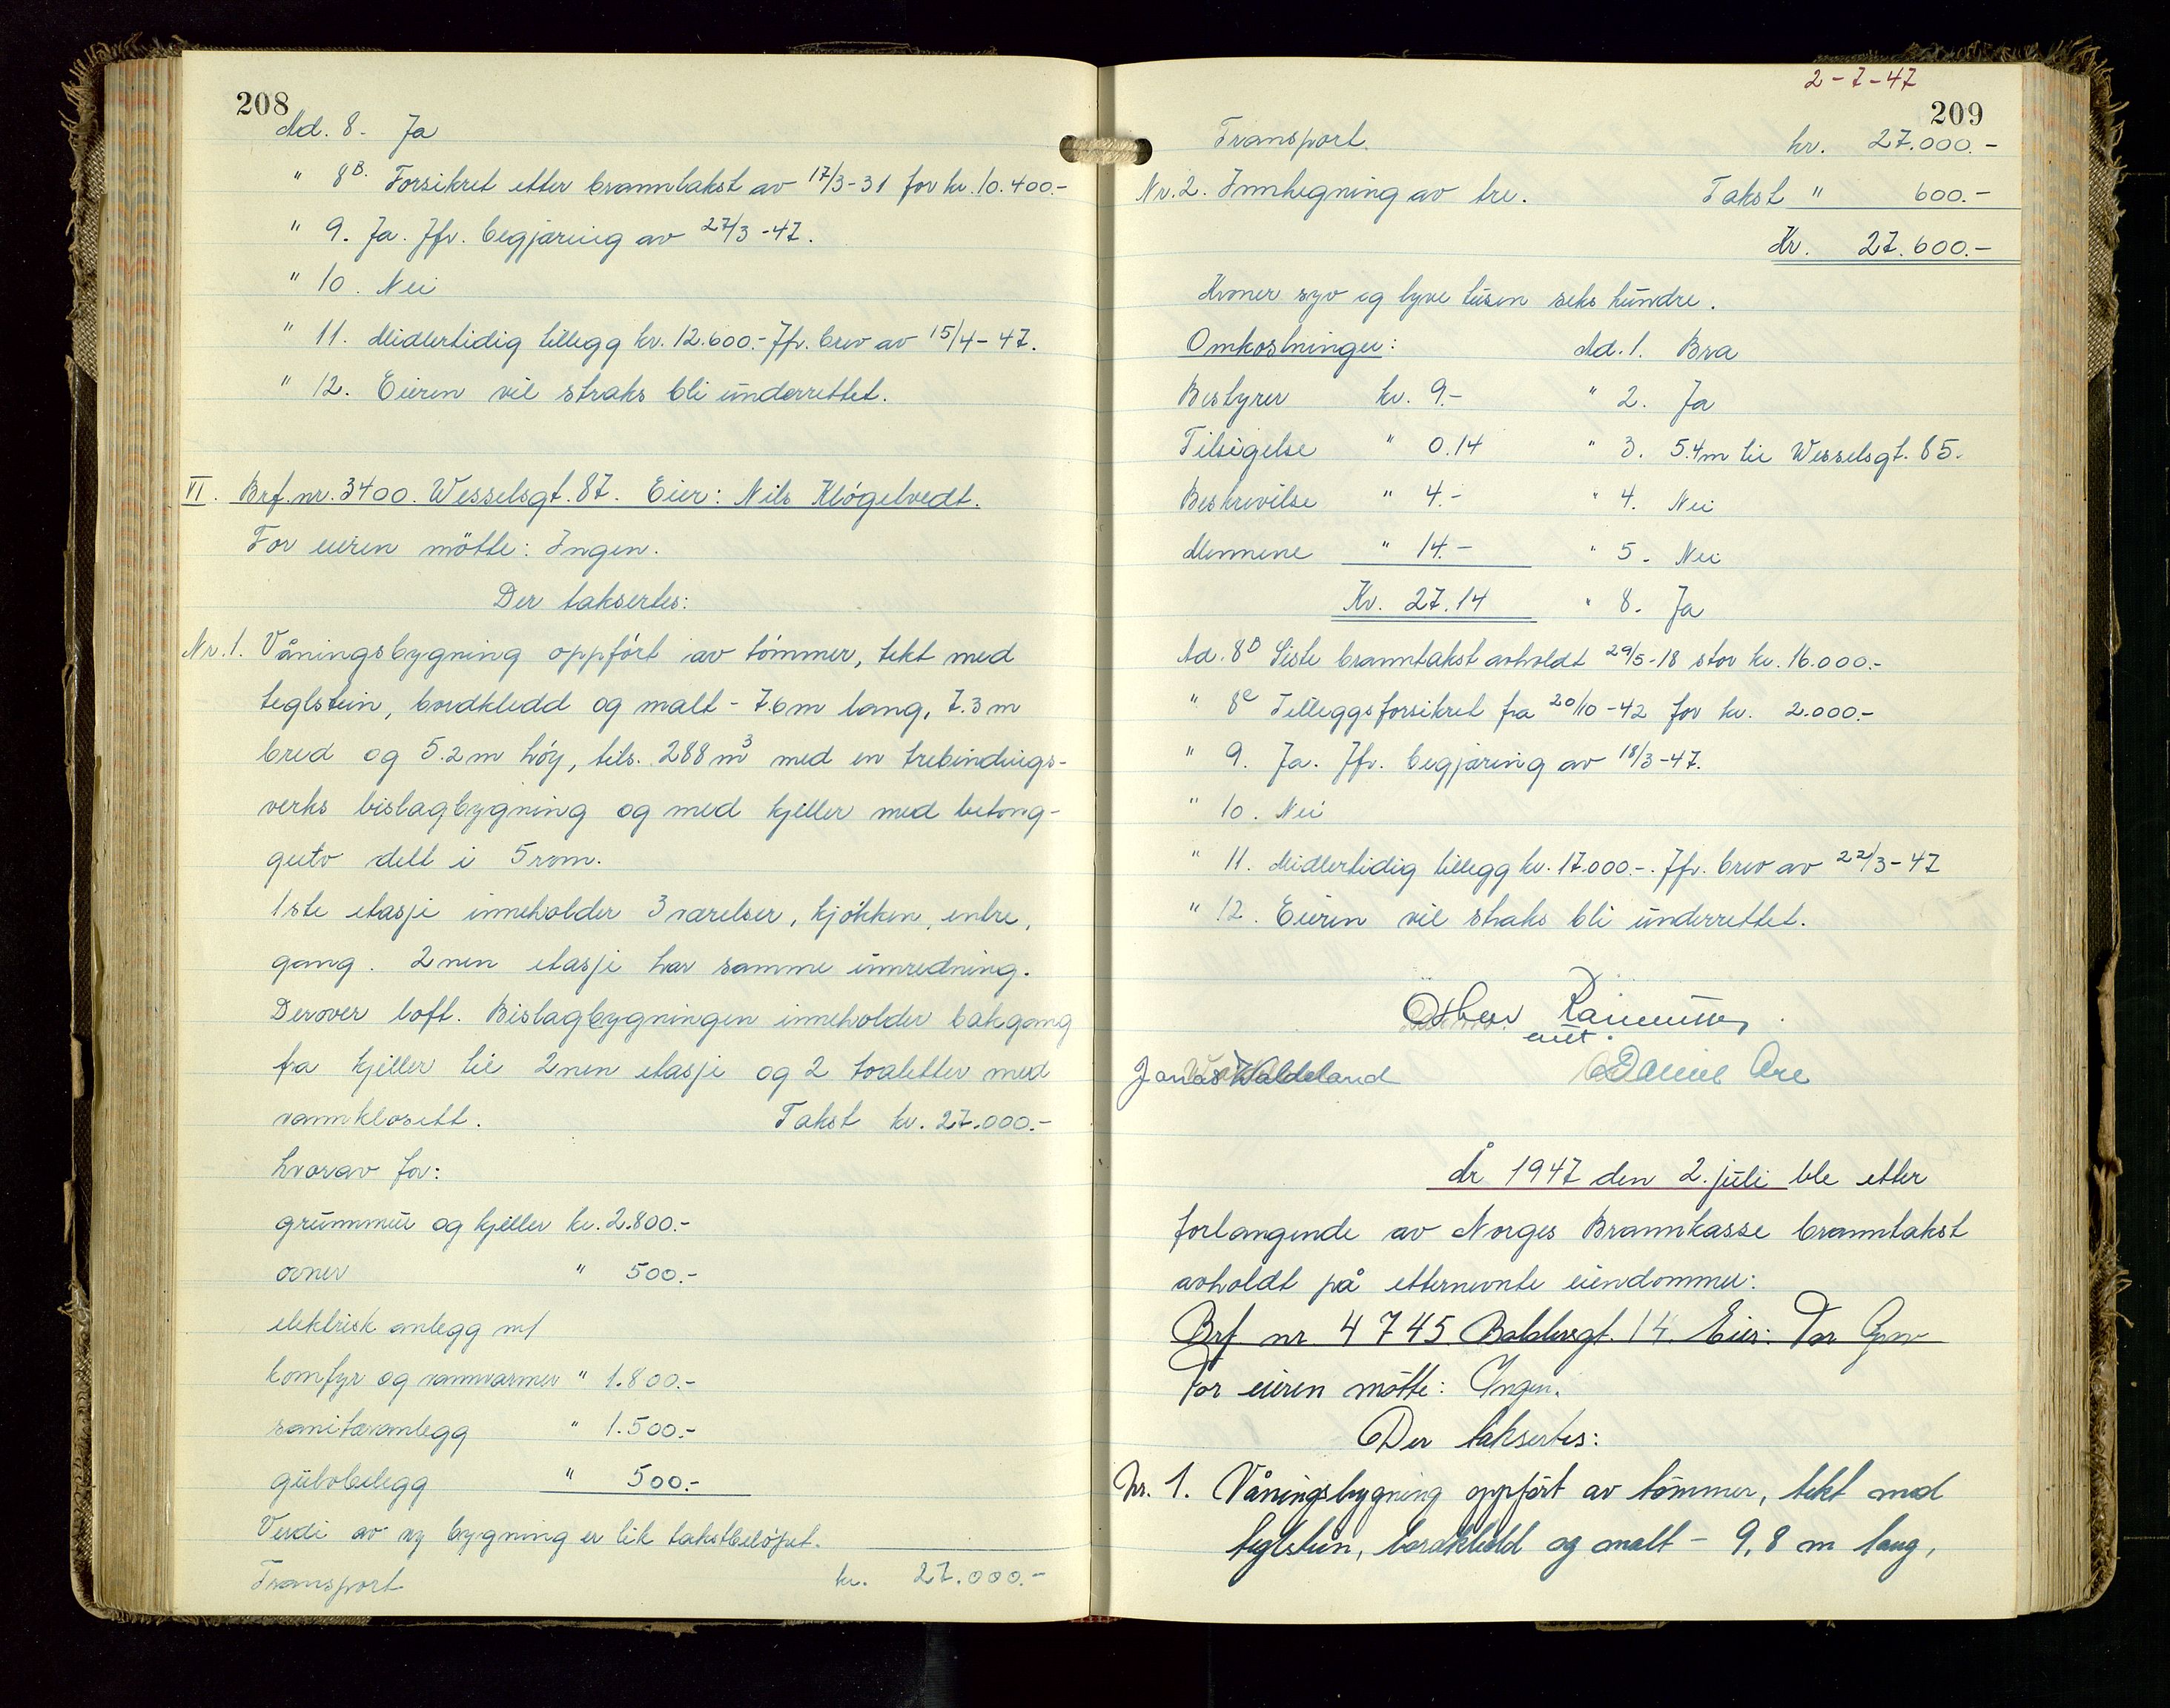 208
Ad. 8. Ja
" 8B. Forsikret etter branntakst av 17/3-31 for kr. 10.400.-
" 9. Ja. Jfr. begjæring av 27/3-47.
" 10. Nei
" 11. Midlertidig tillegg kr. 12.600.- Jfr. brev av 15/4-47.
" 12. Eieren vil straks bli underrettet.
VI. Brf. nr. 3400. Wesselsgt. 87. Eier: Nils Kløgetvedt.
For eieren møtte: Ingen.
Der taksertes:
Nr. 1. Våningsbygning oppført av tømmer, tekt med
teglstein, bordkledd og malt - 7.6 m lang, 7.3 m
bred og 5.2 m høy, tils. 288 m3 med en trebindings-
verks bislagbygning og med kjeller med betong-
gulv delt i 5 rom.
1ste etasje inneholder 3 værelser, kjøkken, entre,
gang. 2nen etasje har samme innredning.
Derover loft. Bislagbygningen inneholder bakgang
fra kjeller til 2nen etasje og 2 toaletter med
vannklosett. Takst kr. 27.000.-
hvorav for:
grunnmur og kjeller kr. 2.800.-
ovner " 500.-
elektrisk anlegg m/
komfyr og vannvarmer " 1.800.-
sanitæranlegg " 1.500.-
gulvbelegg " 500.-
Verdi av ny bygning er lik takstbeløpet.
Transport kr. 27.000.-
2-7-47
209
Transport kr. 27.000.-
Nr. 2. Innhegning av tre. Takst " 600.-
Kr. 27.600.-
Kroner syv og tyve tusen seks hundre.
Omkostninger: Ad. 1. Bra
Bestyrer kr. 9.- " 2. Ja
Tilsigelse " 0.14 " 3. 5.4m til Wesselsgt. 85.
Beskrivelse " 4.- " 4. Nei
Mennene " 14.- " 5. Nei
Kr. 27.14 " 8. Ja
Ad. 8B Siste branntakst avholdt 29/5-18 stor kr. 16.000.-
" 8C Tilleggsforsikret fra 20/10-42 for kr. 2.000.-
" 9. Ja. Jfr. begjæring av 18/3-47.
" 10. Nei
" 11. Midlertidig tillegg kr. 17.000.-. Jfr. brev av 22/3-47
" 12. Eieren vil straks bli underrettet.
Jonas Waldeland Daniel
År 1947 den 2. juli ble etter
forlangende av Norges Brannkasse branntakst
avholdt på etternevnte eiendommer:
Brf nr. 4745 Baldersgt. 14. Eier: Tor
For eieren møtte: Ingen.
Der taksertes:
Nr. 1. Våningsbygning oppført av tømmer, tekt med
teglstein, bordkledd og malt - 9,8 m lang,